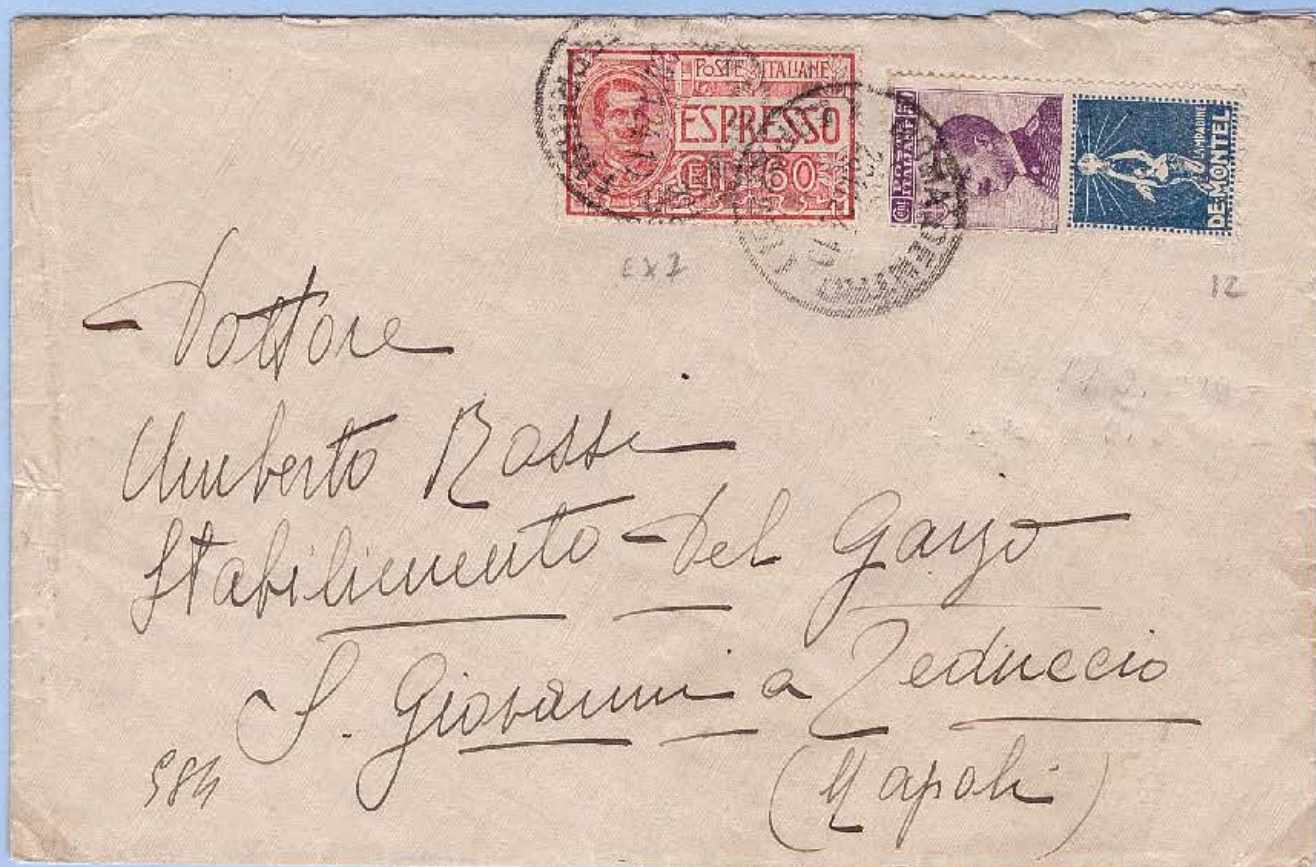 POSTE ITALIANE
ESPRESSO
CENT. 60
POSTE ITALIANE
50
LAMPADINE
DE MONTEL
ROMA CENTRO
EX 2
12
Dottore
Umberto Rossi
Stabilimento del Gazo
S. Giovanni a Teduccio
(Napoli)
584